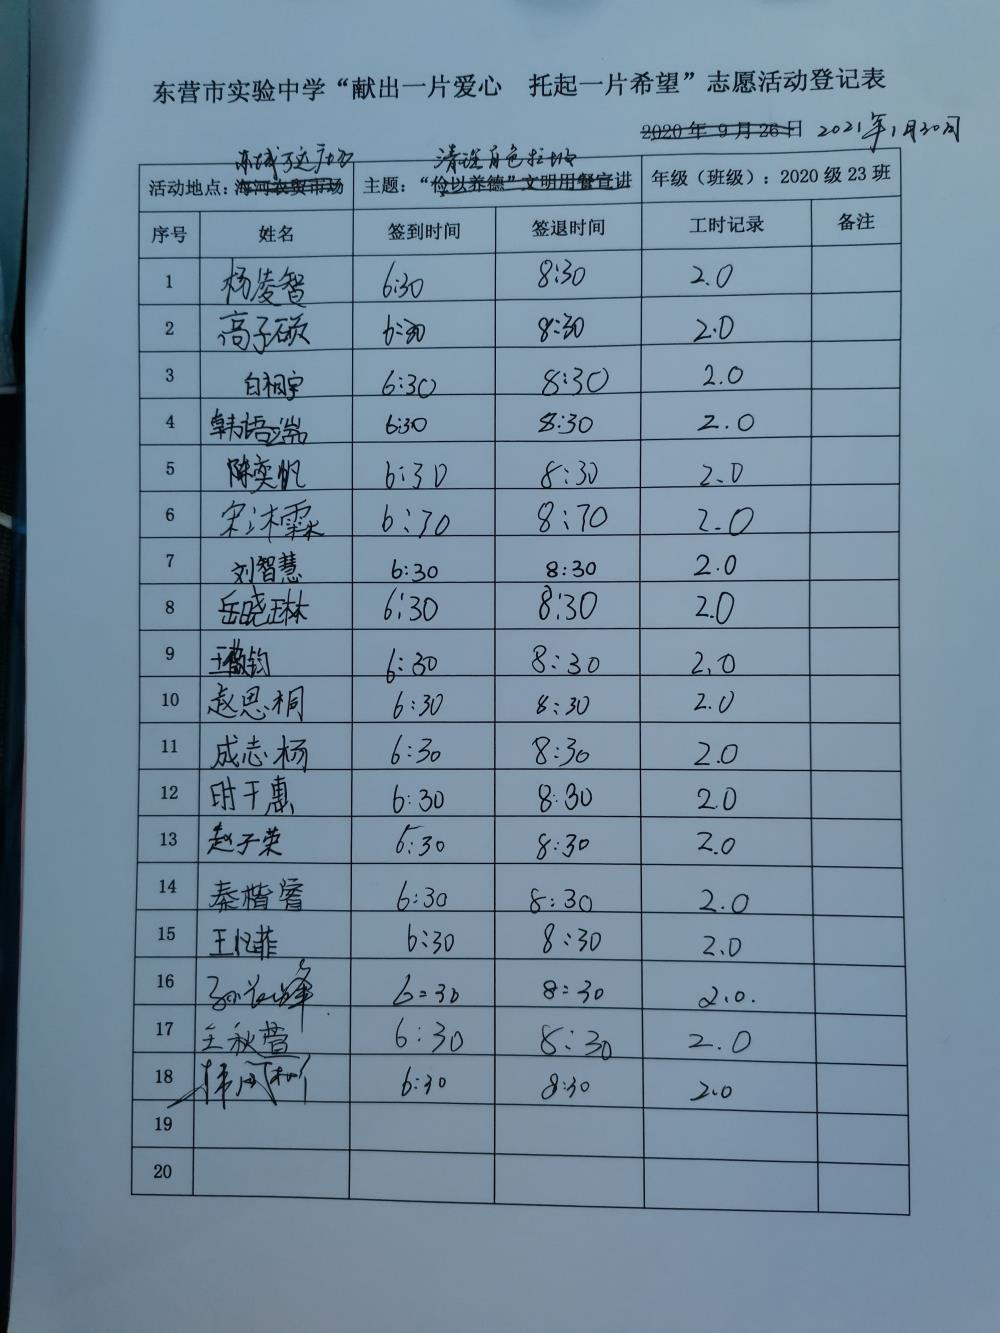 东营市实验中学“献出一片爱心 托起一片希望”志愿活动登记表
2020年9月26日 2021年1月30日
东城万达广场 清理白色垃圾
活动地点：海河农贸市场 主题：“俭以养德”文明用餐宣讲 年级（班级）：2020级23班
序号 姓名 签到时间 签退时间 工时记录 备注
1 杨凌智 6:30 8:30 2.0
2 高子硕 6:30 8:30 2.0
3 白相宇 6:30 8:30 2.0
4 韩语湍 6:30 8:30 2.0
5 陈奕帆 6:30 8:30 2.0
6 宋沐霖 6:30 8:30 2.0
7 刘智慧 6:30 8:30 2.0
8 岳晓琳 6:30 8:30 2.0
9 王钧 6:30 8:30 2.0
10 赵思桐 6:30 8:30 2.0
11 成志杨 6:30 8:30 2.0
12 时于惠 6:30 8:30 2.0
13 赵子荣 6:30 8:30 2.0
14 秦楷睿 6:30 8:30 2.0
15 王忆菲 6:30 8:30 2.0
16 6:30 8:30 2.0.
17 王秋萱 6:30 8:30 2.0
18 6:30 8:30 2.0
19
20